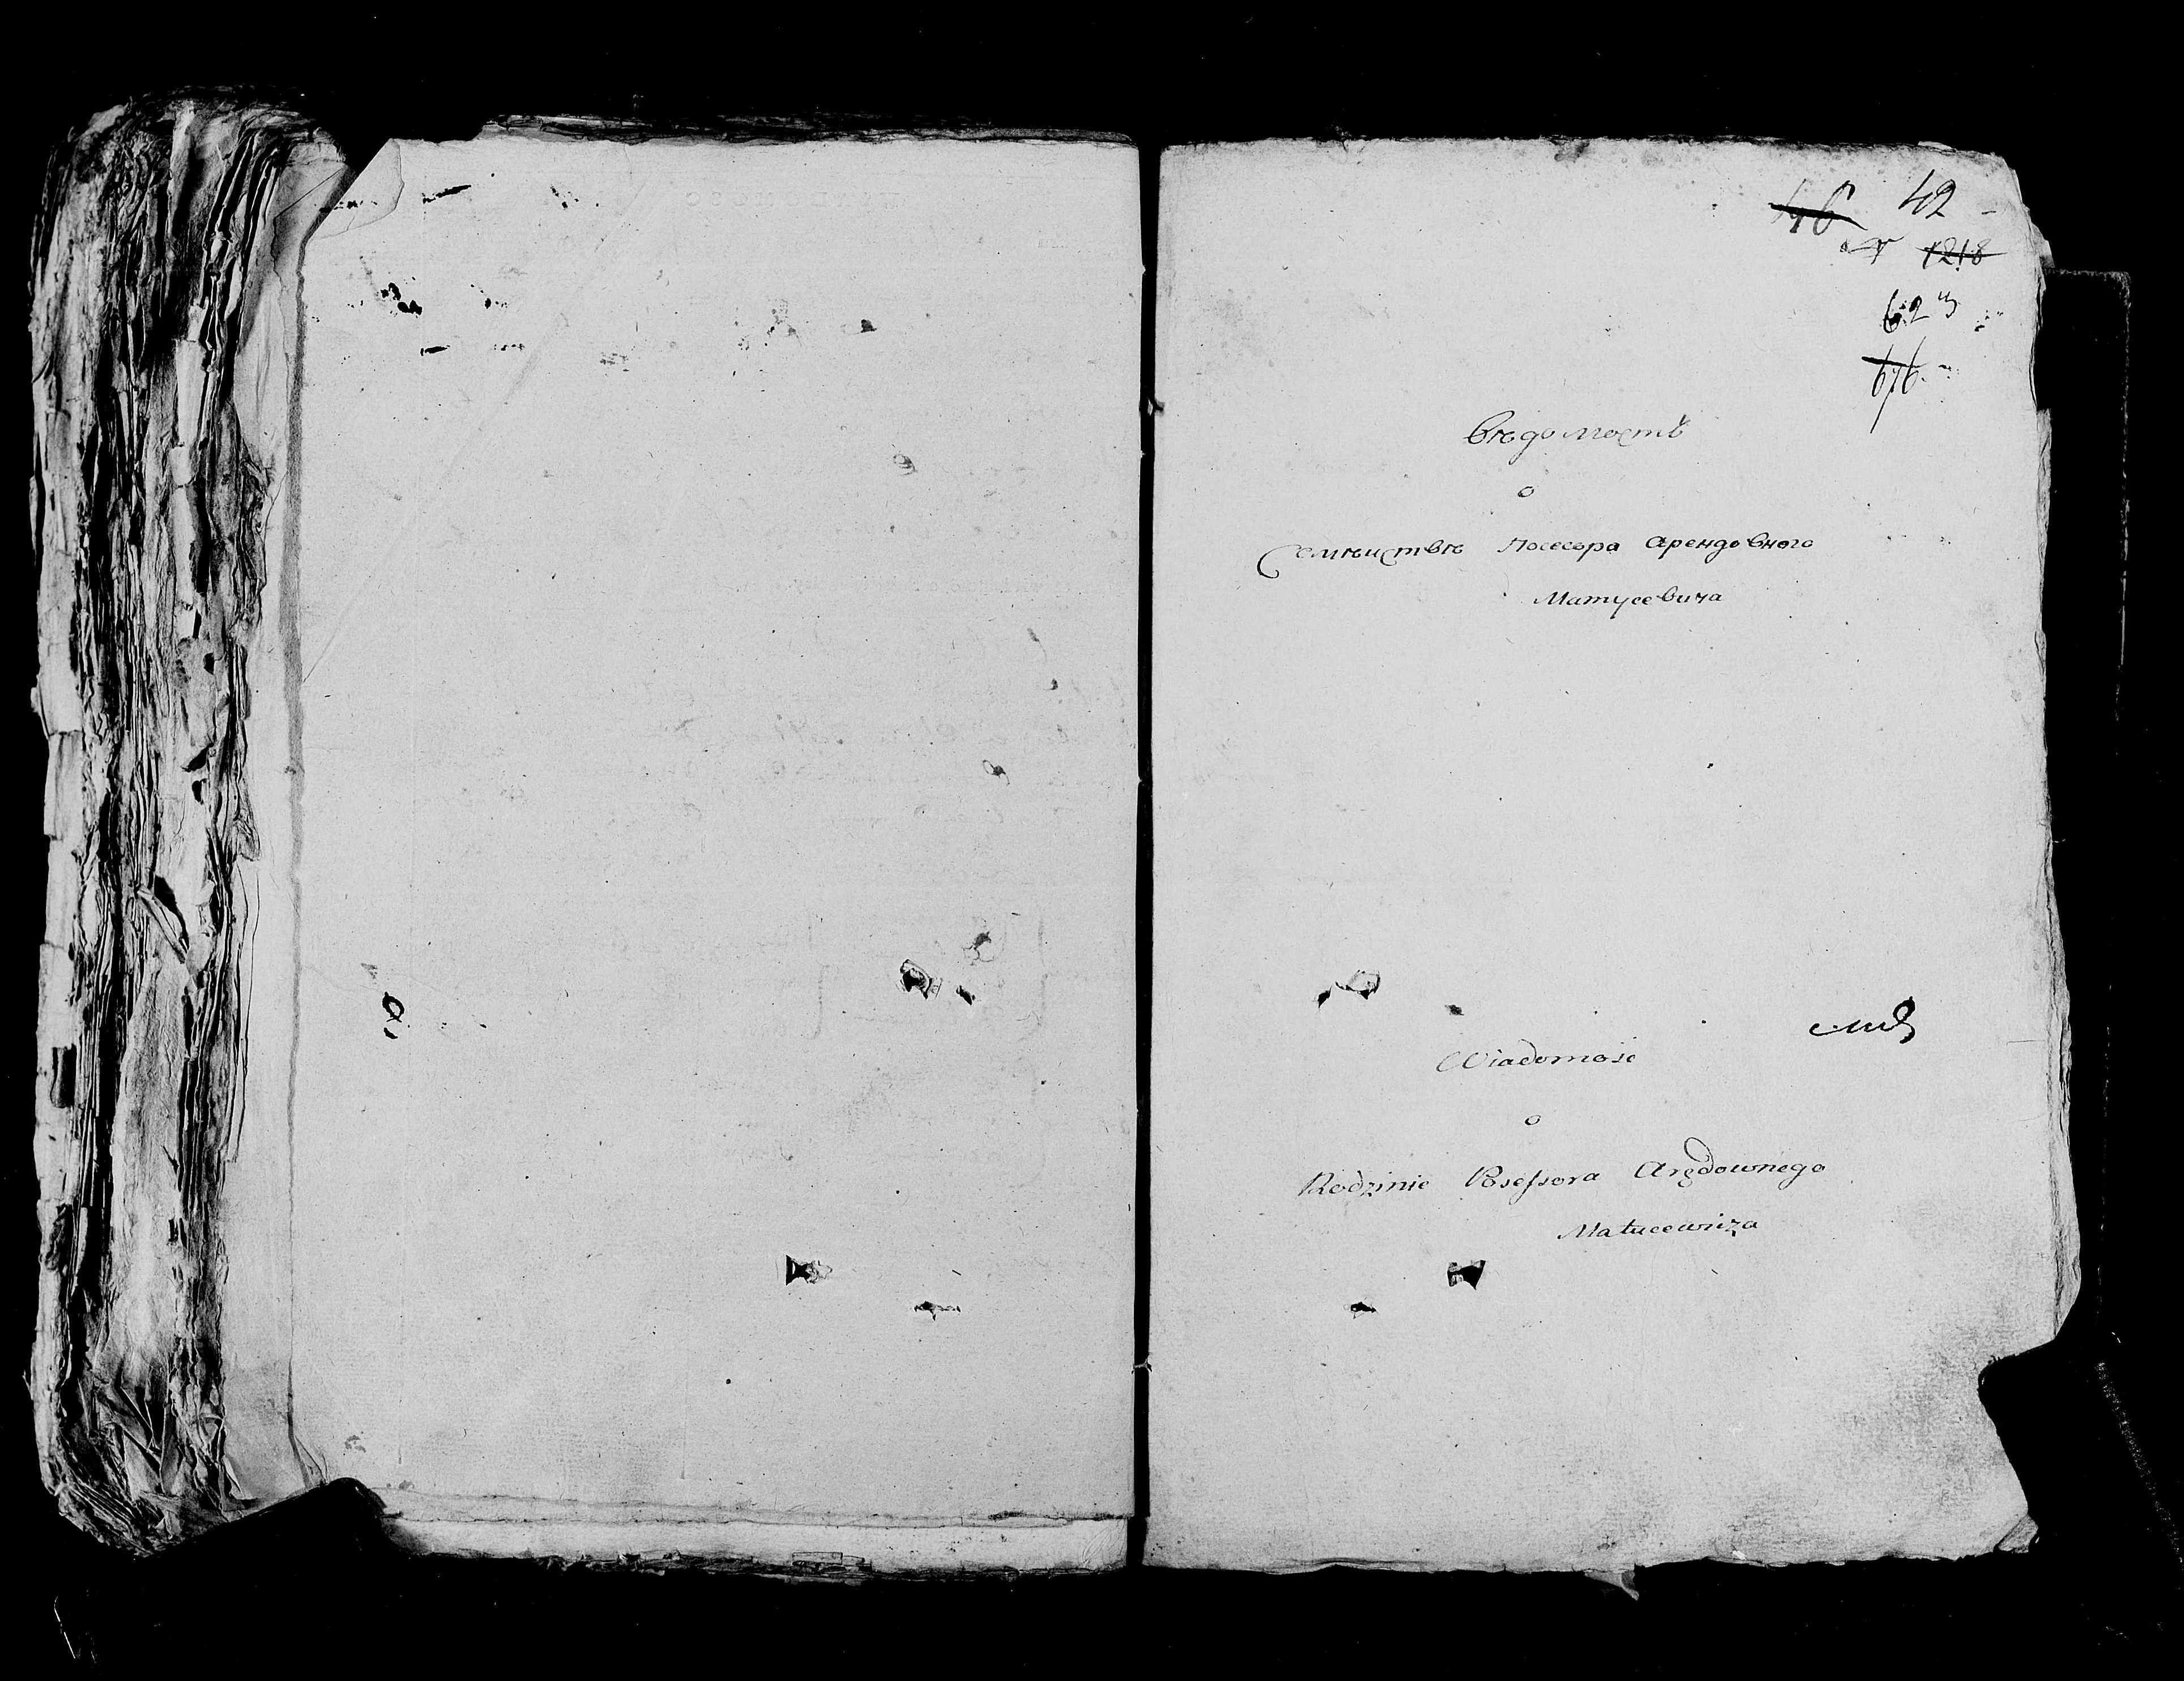 42
1218
62
676.
Вѣдомость
о
Семѣиствѣ Посесора Арендовного
Матусевича
Wiadomosc
о
Rodzinie Possessora Arędownego
Matucewicza